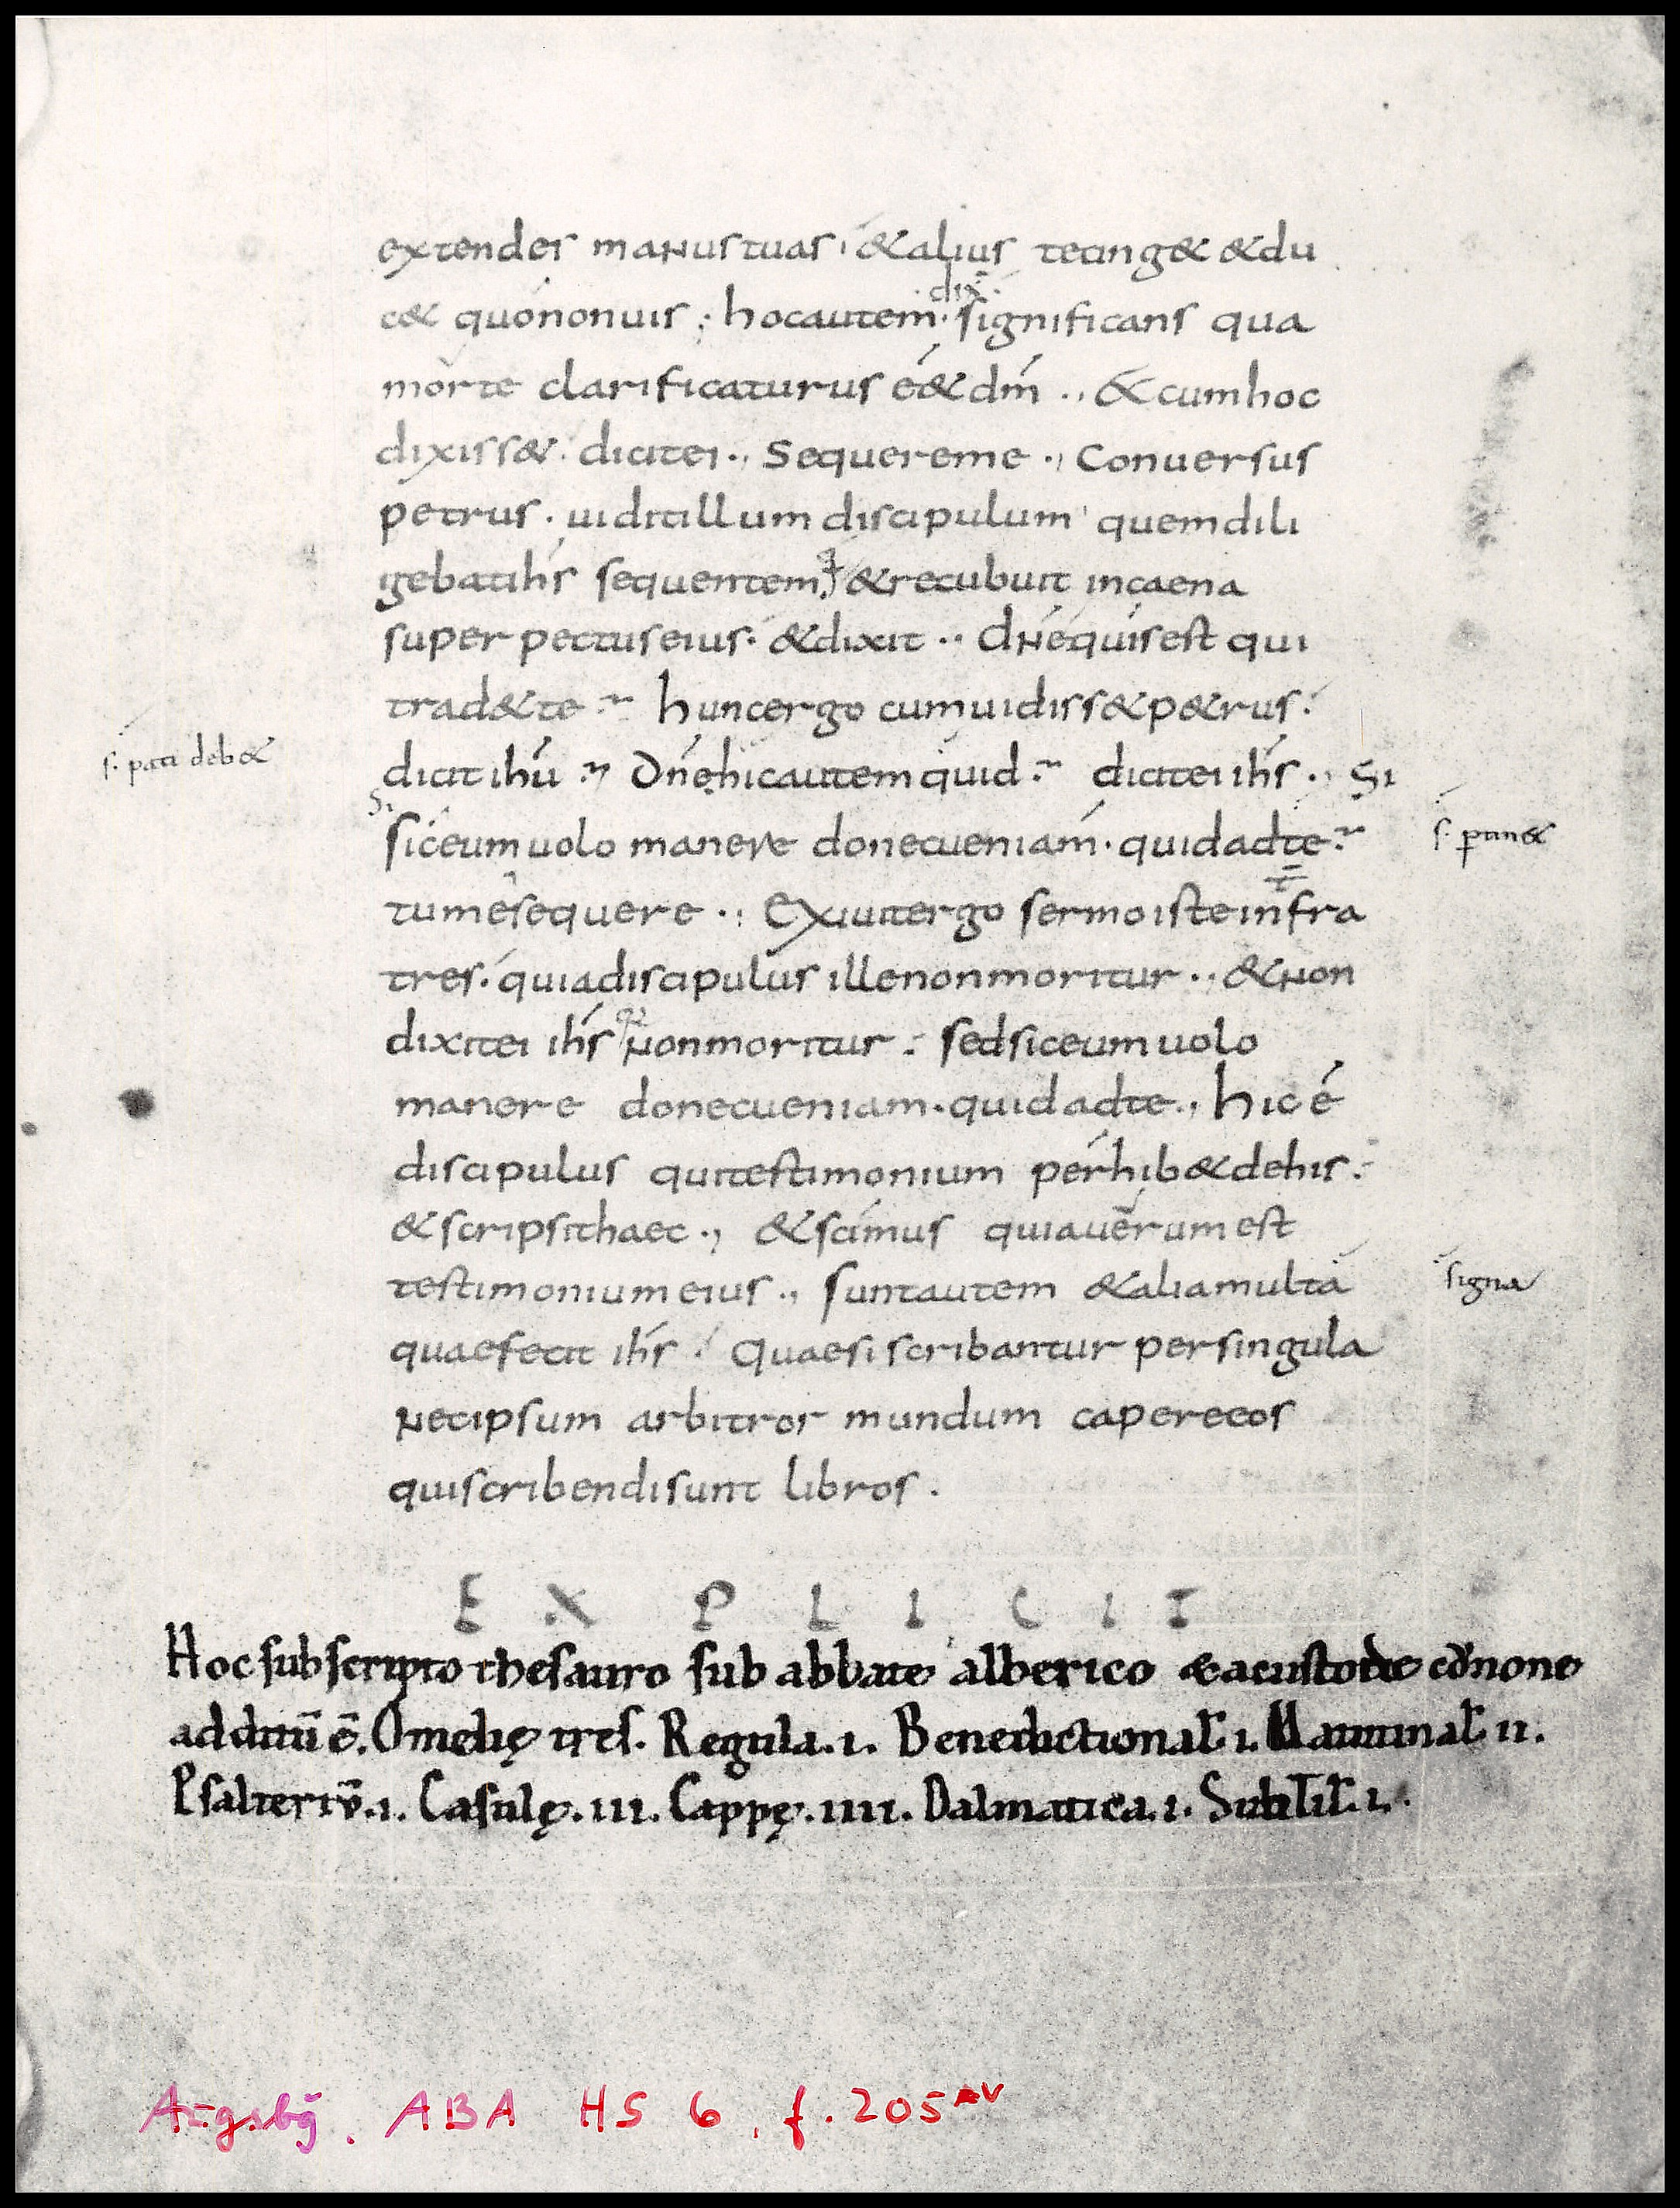 extendes manus tuas & alius te cing& & du
dix
c& quo non uis ; hoc autem significans qua
morte clarificaturus e& dm̄ ., & cum hoc
dixiss& . dicit ei ., Sequere me ., Conuersus
petrus . uidit illum discipulum quem dili
gebat ihs sequentem & recubuit in caena
super pectus eius . & dixit .. Dn̄e quis est qui
trad& te hunc ergo cum uidiss& p&rus
f. pati deb&
dicit ihū Dn̄e hic autem quid dicit ei ihs ., Si
Si
sic eum uolo manere donec ueniam . quid ad te
tu me sequere ., Exiuit ergo sermo iste in fra
tres . quia discipulus ille non moritur .. & non
dixit ei ihs non moritur . sed sic eum uolo
manere donec ueniam . quid ad te ., hic ē
discipulus qui testimonium perhib& de his
& scripsit haec ., & scimus quia uerum est
testimonium eius ., sunt autem & alia multa
signa
quae fecit ihs Quae si scribantur per singula
nec ipsum arbitror mundum capere eos
qui scribendi sunt libros .
EXPLICIT
Hoc subscripto thesauro sub abbate alberico & a custode cŏnone
additū ē. Omelię tres. Regula. i. Benedictional. i. Matutinal. ii.
Psalteriū. i. Casulę. iii. Cappę. iiii. Dalmatica. i. Subtil. i.
Augsbg. ABA HS 6, f. 205 v